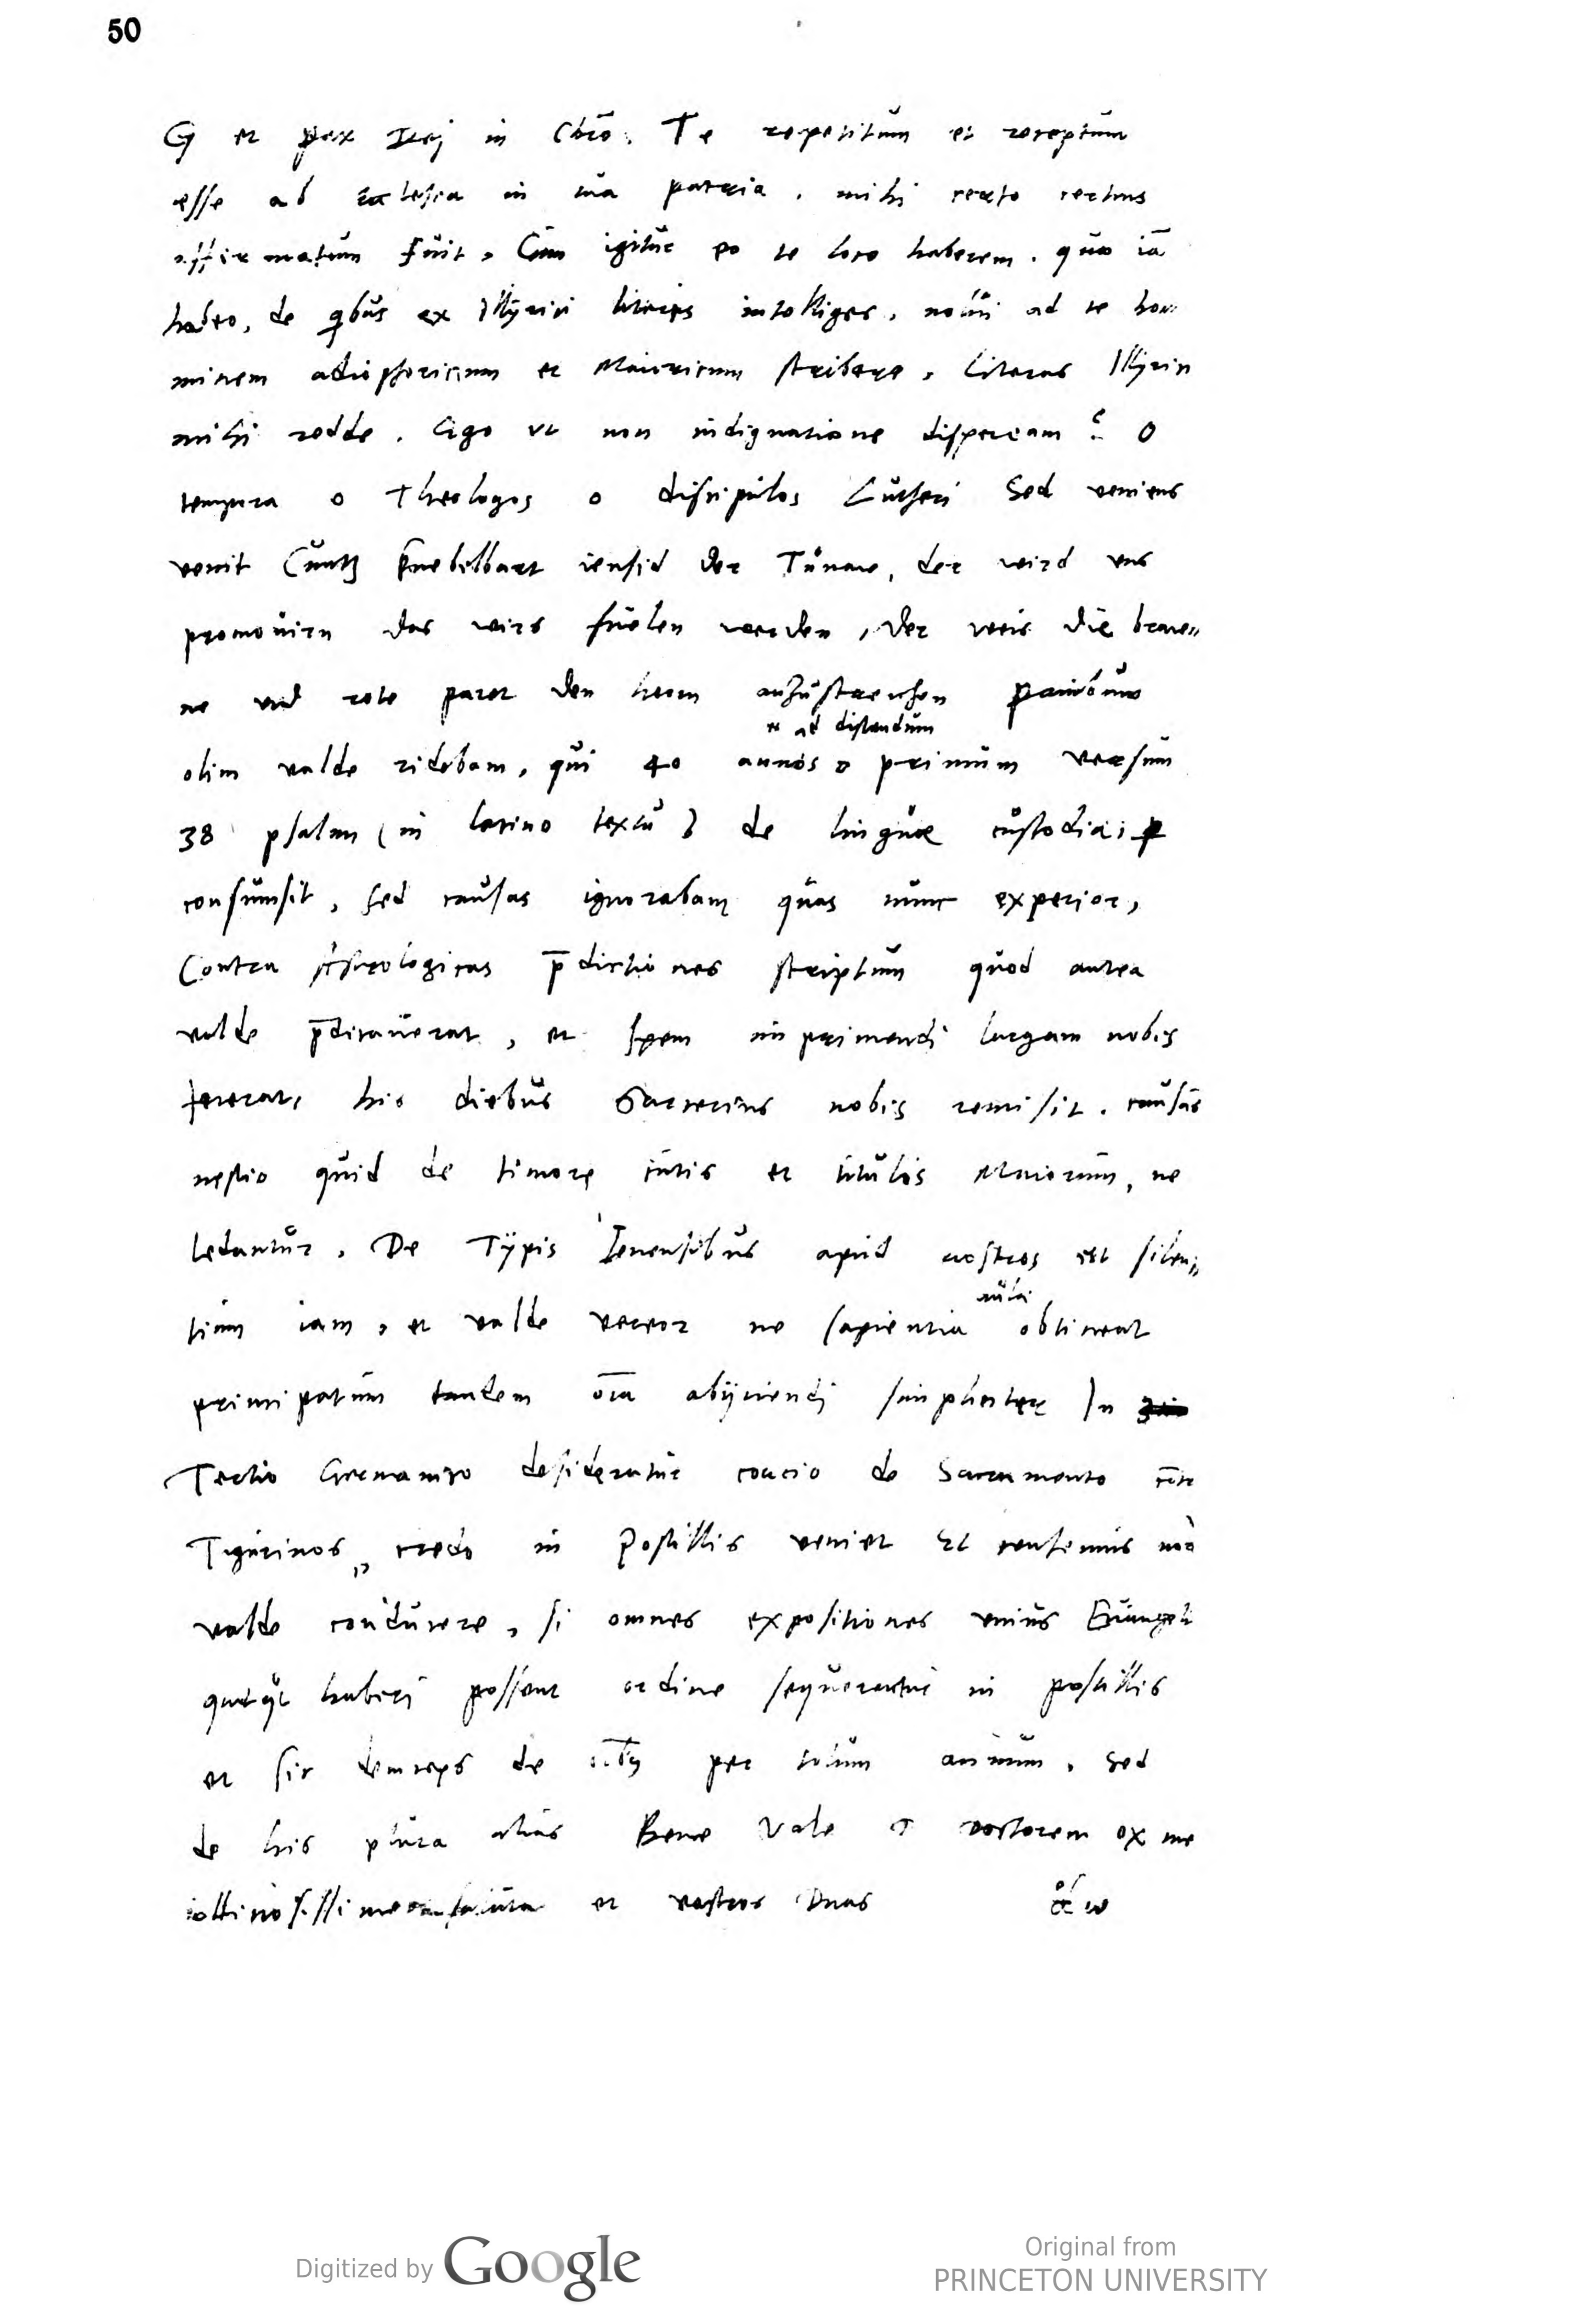 50
G et pax Dei in Chro. Te repetitum et receptum
esse ab ecclesia in tua patria, mihi certo certius
affirmatum fuit, Cum igitur eo te loco haberem, quo iā
habeo, de qbus ex Illyrici literis intelliges, nolui ad te ho-
minem adiaphoricum et Maioricum scribere, Literas Illyrici
mihi redde. Ego vt non indignatione dispeream? O
tempora o Theologos o discipulos Lutheri Sed veniens
venit Cuntz Knebelbart iensid der Tunaw, der wird vns
promovirn das wirs fuelen werden, Der weis die brawn
ne vnd rote paret den hern anzustreichen
olim valde ridebam, qui 40 annos primum versum
et ad discendum
38 psalmi (in latino textu) de linguae custodia
consumsit, sed causas ignorabam quas nunc experior,
Contra Astrologicas p̄dictiones scriptum quod antea
valde p̄dicauerat, et spem imprimendi largam nobis
fecerat, his diebus Sarcerius nobis remisit. causās
nescio quid de timore cutis et titulis Maiorum, ne
ledantur. De Typis Ienensibus apud nostros est silen
tium iam, et valde vereor ne sapientia obtineat
aulae
principatum tandem oīa abijciendi simpliciter In
Tertio Germanico desideratur concio de Sacramento
Tigurinos, credo in Postillis veniet Et censemus
valde conducere, si omnes expositiones vnius Euangeli
quotqt haberi possent ordine sequerentur in postillis
et sic deinceps de per totum annum. Sed
de his plura alias Bene Vale rectorem ex me
et vestros Dnas
Digitized by Google
Original from
PRINCETON UNIVERSITY